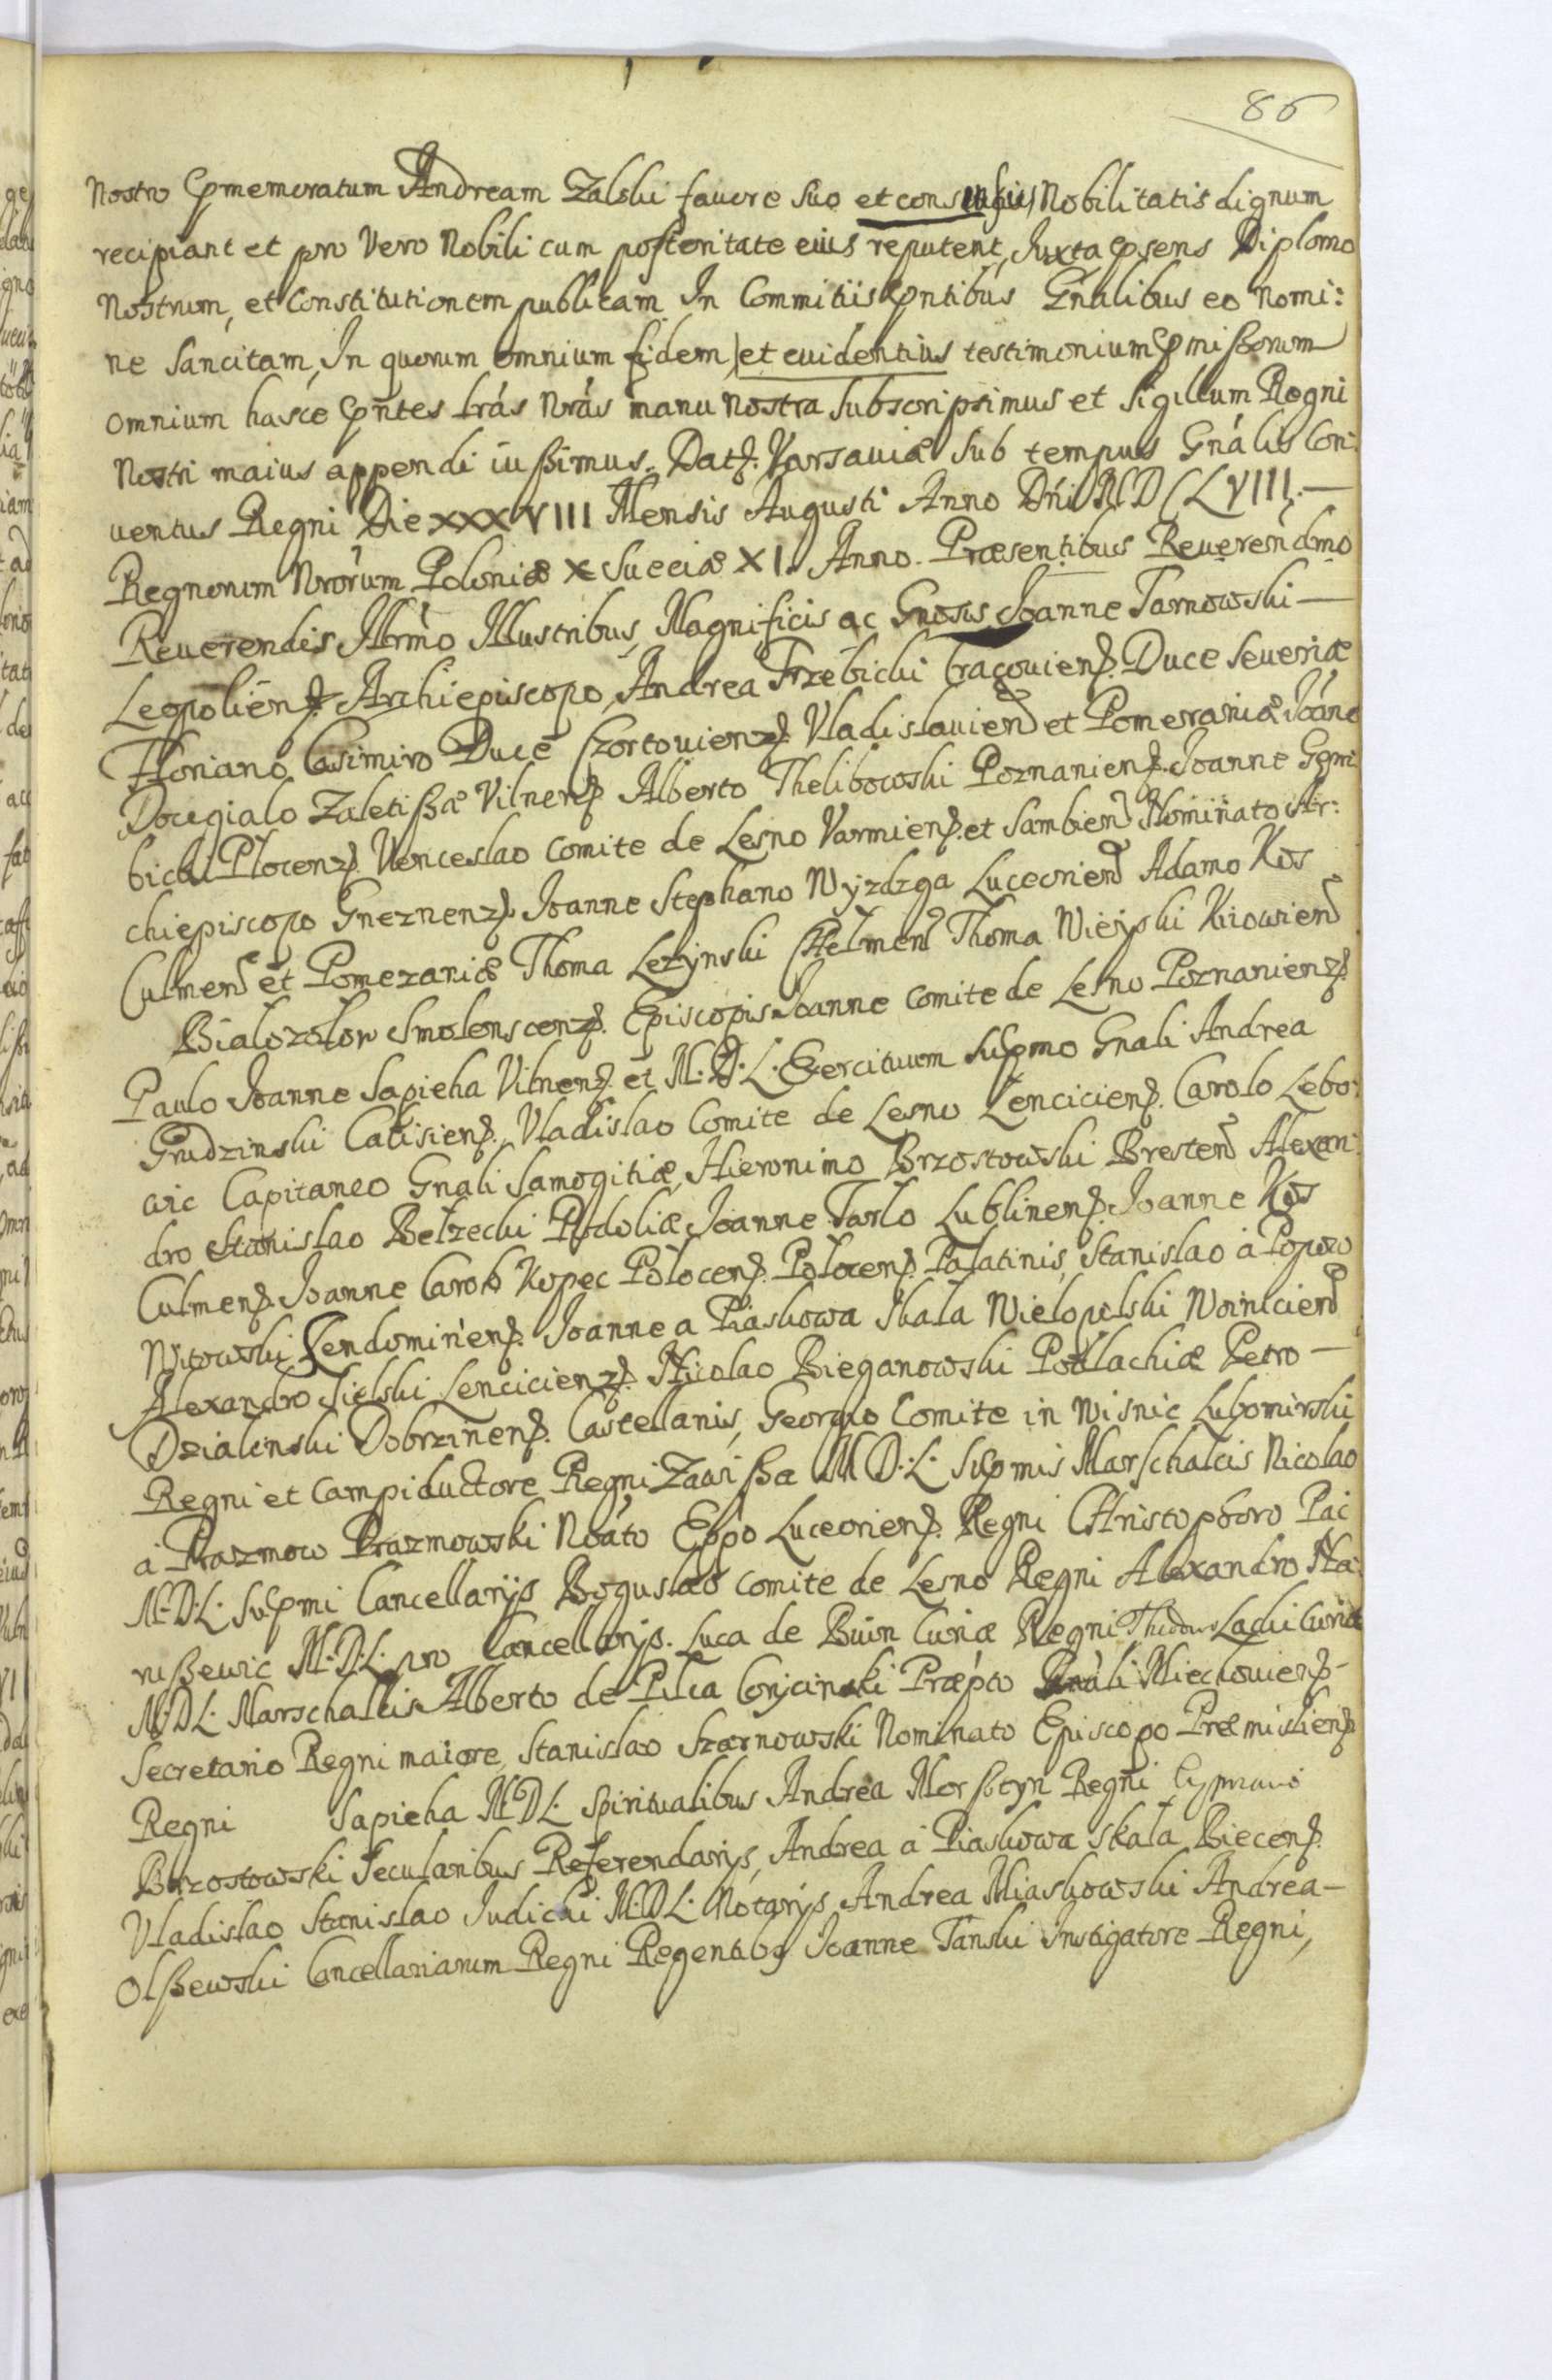 86
Nostro p̱memoratum Andream Zalski favore suo et consensu Nobilitatis dignum
recipiant et pro Vero Nobili cum posteritate eius reputent, Juxta p̱sens Diploma
Nostrum, et Constitutionem publicam In Commitiis p̱ntibus Gn̄alibus eo Nomi:
ne Sancitam, In quorum omnium fidem, et euidentius testimonium p̱missorum
omnium hasce p̱ntes l̄ras Nr̄as manu Nostra Subscripsimus et Sigillum Regni
Nostri maius appendi iußimus. Datt. Varsauiæ Sub tempus Gn̄alis Con:
uentus Regni Die XXXVIII Mensis Augusti Anno Dn̄i MDCLVIII. —
Regnorum Nr̄orum Poloniæ X Sueciæ XI. Anno. Præsentibus Reuerendmo
Reuerendis Illrm̄o Illustribus, Magnificis ac Gnosis Joanne Tarnowski —
Leopolien. Archiepiscopo, Andrea Trzebicki Cracouien. Duce Seueriæ
Floriano Casimiro Duce Czortouien. Vladislauien et Pomeraniæ Joāne
Dowgialo Zaleußæ Vilnen. Alberto Tholibowski Poznanien. Joanne Gem:
bicki Plocen. Venceslao Comite de Lesno Varmien. et Sambien Nominato Ar:
chiepiscopo Gneznen. Joanne Stephano Wyzdzga Luceorien Adamo Kos
Culmen et Pomezaniæ Thoma Lezynski Chelmen Thoma Wieyski Kiowien
Bialozolow Smolenscen. Episcopis Joanne Comite de Lesno Poznanien.
Paulo Joanne Sapieha Vilnen. et M. D. L. Exercituum Sup̱mo Gnali Andrea
Grudzinski Calisien. Vladislao Comite de Lesno Lencicien. Carolo Lebo:
wic Capitaneo Gnali Samogitiæ, Hieronimo Brzostowski Bresten Alexan:
dro Stanislao Belzecki Podoliæ Joanne Tarlo Lublinen. Joanne Kos
Culmen. Joanne Carolo Kopec Polocen. Polocen. Palatinis, Stanislao à Popowo
Witowski Sendomirien. Joanne a Piaskowa Skala Wielopolski Woinicien
Alexandro Sielski Lencicien. Nicolao Bieganowski Podlachiæ Petro —
Dzialinski Dobrzinen. Castellanis, Georgio Comite in Wisnic Lubomirski
Regni et Campiductore Regni Zawißa M D. L. Sup̱mis Marschalcis Nicolao
à Prazmow Prazmowski Noāto Ep̄po Luceorien. Regni Christophoro Pac
M. D. L. Sup̱mi Cancellarijs Boguslao Comite de Lesno Regni Alexandro Na:
rußewic M. D. L. pro Cancellarijs. Luca de Buin Curiæ Regni Theodoro Lacki Curiæ
M. D. L. Marschalcis Alberto de Pilca Corycinski Præp̄to Gnali Miechouien. —
Secretario Regni maiore, Stanislao Szarnowski Nominato Episcopo Præmislien.
Regni Sapieha M D L. Spiritualibus Andrea Morßtyn Regni Cypriano
Brzostowski Secularibus Referendarijs, Andrea à Piaskowa Skala Biecen.
Vladislao Stanislao Judicki M. D. L. Notarijs, Andrea Miaskowski Andrea —
Olßewski Cancellariarum Regni Regentibq Joanne Tanski Instigatore Regni,